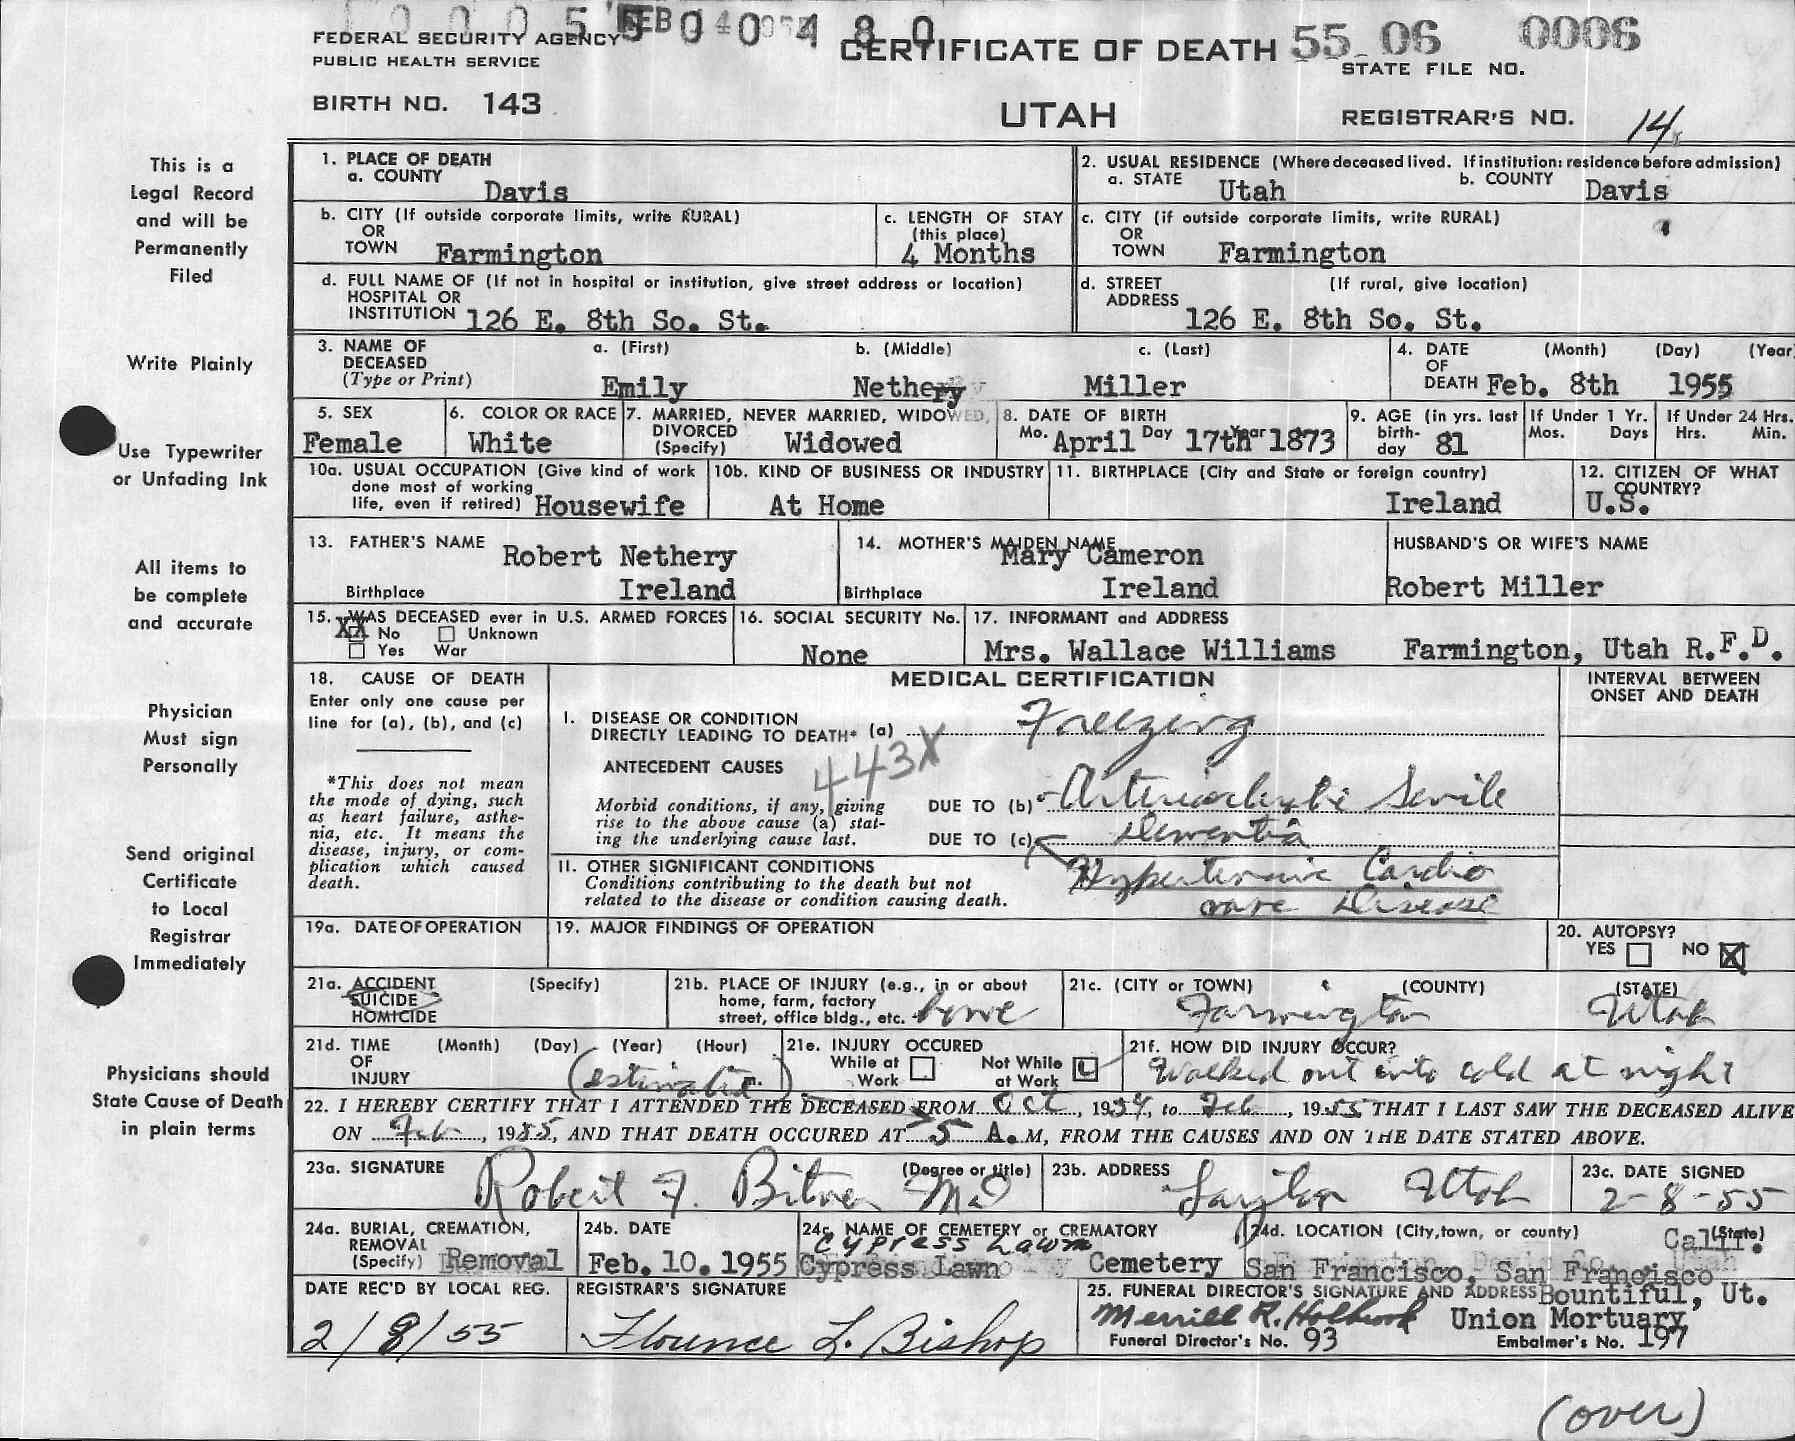 FEDERAL SECURITY AGENCY
PUBLIC HEALTH SERVICE
CERTIFICATE OF DEATH 55 06 0006
STATE FILE NO.
BIRTH NO. 143
UTAH
REGISTRAR'S NO. 14
This is a
Legal Record
and will be
Permanently
Filed
Write Plainly
Use Typewriter
or Unfading Ink
All items to
be complete
and accurate
Physician
Must sign
Personally
Send original
Certificate
to Local
Registrar
Immediately
Physicians should
State Cause of Death
in plain terms
1. PLACE OF DEATH
a. COUNTY Davis
2. USUAL RESIDENCE (Where deceased lived. If institution: residence before admission)
a. STATE Utah b. COUNTY Davis
b. CITY (If outside corporate limits, write RURAL)
OR
TOWN Farmington
c. LENGTH OF STAY
(this place)
4 Months
c. CITY (if outside corporate limits, write RURAL)
OR
TOWN Farmington
d. FULL NAME OF (If not in hospital or institution, give street address or location)
HOSPITAL OR
INSTITUTION 126 E. 8th So. St.
d. STREET (If rural, give location)
ADDRESS 126 E. 8th So. St.
3. NAME OF
DECEASED
(Type or Print)
a. (First) b. (Middle) c. (Last)
Emily Nethery Miller
4. DATE (Month) (Day) (Year)
OF
DEATH Feb. 8th 1955
5. SEX
Female
6. COLOR OR RACE
White
7. MARRIED, NEVER MARRIED, WIDOWED,
DIVORCED
(Specify) Widowed
8. DATE OF BIRTH
Mo. April Day 17th Year 1873
9. AGE (in yrs. last
birth-
day 81
If Under 1 Yr.
Mos. Days
If Under 24 Hrs.
Hrs. Min.
10a. USUAL OCCUPATION (Give kind of work
done most of working
life, even if retired) Housewife
10b. KIND OF BUSINESS OR INDUSTRY
At Home
11. BIRTHPLACE (City and State or foreign country)
Ireland
12. CITIZEN OF WHAT
COUNTRY?
U.S.
13. FATHER'S NAME Robert Nethery
Birthplace Ireland
14. MOTHER'S MAIDEN NAME
Mary Cameron
Birthplace Ireland
HUSBAND'S OR WIFE'S NAME
Robert Miller
15. WAS DECEASED ever in U.S. ARMED FORCES
XX No Unknown
Yes War
16. SOCIAL SECURITY No.
None
17. INFORMANT and ADDRESS
Mrs. Wallace Williams Farmington, Utah R.F.D.
18. CAUSE OF DEATH
Enter only one cause per
line for (a), (b), and (c)
*This does not mean
the mode of dying, such
as heart failure, asthe-
nia, etc. It means the
disease, injury, or com-
plication which caused
death.
MEDICAL CERTIFICATION
INTERVAL BETWEEN
ONSET AND DEATH
I. DISEASE OR CONDITION
DIRECTLY LEADING TO DEATH* (a) Freezing
ANTECEDENT CAUSES 443X
Morbid conditions, if any, giving
rise to the above cause (a) stat-
ing the underlying cause last.
DUE TO (b) Senile
DUE TO (c) Dementia
II. OTHER SIGNIFICANT CONDITIONS
Conditions contributing to the death but not
related to the disease or condition causing death.
Hypertensive Cardio
Disease
19a. DATE OF OPERATION
19. MAJOR FINDINGS OF OPERATION
20. AUTOPSY?
YES NO X
21a. ACCIDENT (Specify)
SUICIDE
HOMICIDE
21b. PLACE OF INJURY (e.g., in or about
home, farm, factory
street, office bldg., etc. home
21c. (CITY or TOWN) (COUNTY) (STATE)
Farmington Utah
21d. TIME (Month) (Day) (Year) (Hour)
OF
INJURY (estimated) m.
21e. INJURY OCCURED
While at Work
Not While at Work
21f. HOW DID INJURY OCCUR?
Walked out into cold at night
22. I HEREBY CERTIFY THAT I ATTENDED THE DECEASED FROM Oct, 1954, to Feb, 1955 THAT I LAST SAW THE DECEASED ALIVE
ON Feb, 1955, AND THAT DEATH OCCURED AT 5 A.M, FROM THE CAUSES AND ON THE DATE STATED ABOVE.
23a. SIGNATURE (Degree or title)
Robert F. Bitner MD
23b. ADDRESS
Layton Utah
23c. DATE SIGNED
2-8-55
24a. BURIAL, CREMATION,
REMOVAL
(Specify) Removal
24b. DATE
Feb. 10. 1955
24c. NAME OF CEMETERY or CREMATORY
Cypress Lawn
Cypress Lawn Cemetery
24d. LOCATION (City, town, or county) (State)
Calif.
San Francisco, San Francisco
DATE REC'D BY LOCAL REG.
2/8/55
REGISTRAR'S SIGNATURE
Florence L. Bishop
25. FUNERAL DIRECTOR'S SIGNATURE AND ADDRESS Bountiful, Ut.
Merrill R. Holbrook Union Mortuary
Funeral Director's No. 93 Embalmer's No. 197
(over)